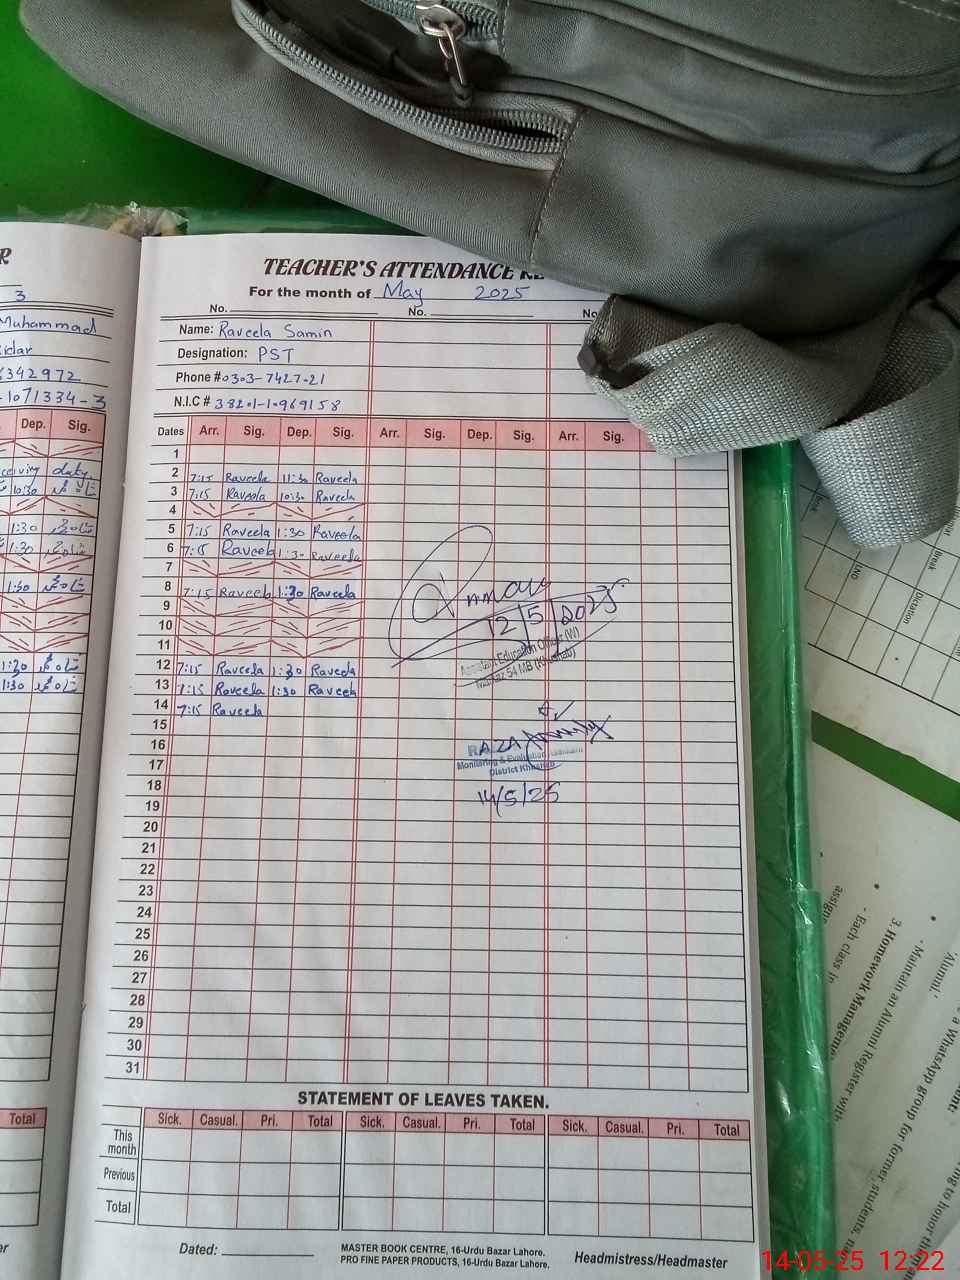 R
3
Muhammad
342972
1071334-3
Dep. Sig.
duty
10:30
1:30
1:30
1:30
1:30
1:30
Total
TEACHER'S ATTENDANCE RE
For the month of May 2025
No. No. No
Name: Raveela Samin
Designation: PST
Phone # 0303-7427021
N.I.C #
Dates Arr. Sig. Dep. Sig. Arr. Sig. Dep. Sig. Arr. Sig.
1
2 7:15 Raveela 11:30 Raveela
3 7:15 Raveela 10:30 Raveela
4
5 7:15 Raveela 1:30 Raveela
6 7:15 Raveela 1:30 Raveela
7
8 7:15 Raveela 1:30 Raveela
9
10
11
12 7:15 Raveela 1:30 Raveela
13 7:15 Raveela 1:30 Raveela
14 7:15 Raveela
15
16
17
18
19
20
21
22
23
24
25
26
27
28
29
30
31
12/5/2025
Assistant Education Officer (W)
Markaz 54 MB (Khushab)
RAZA
Monitoring & Evaluation
District Khushab
14/5/25
STATEMENT OF LEAVES TAKEN.
Sick. Casual. Pri. Total Sick. Casual. Pri. Total Sick. Casual. Pri. Total
This month
Previous
Total
Dated:
MASTER BOOK CENTRE, 16-Urdu Bazar Lahore.
PRO FINE PAPER PRODUCTS, 16-Urdu Bazar Lahore.
Headmistress/Headmaster
Break
Dictation
assign
- Each class in
3. Homework Manageme
- Maintain an Alumni Register with
'Alumni.'
a WhatsApp group for former students,
ing to honor
14-05-25 12:22